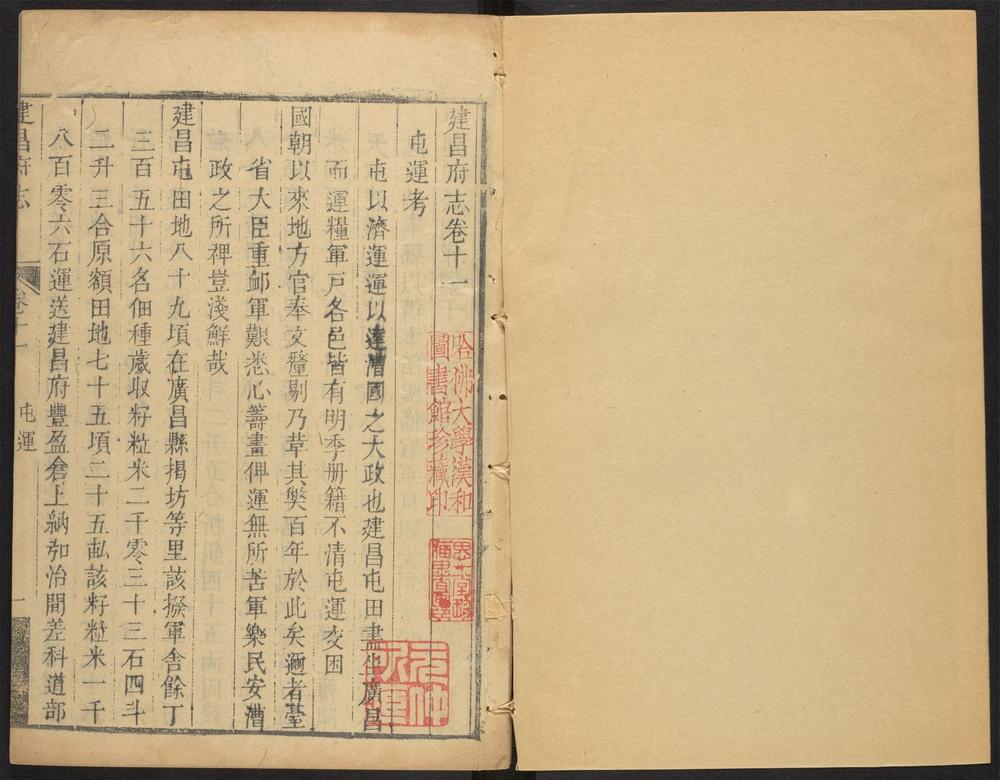 建昌府志卷十一
屯運考
屯以濟運運以達漕國之大政也建昌屯田盡坐廣昌
而運糧軍戶各邑皆有明季册籍不清屯運交困
國朝以來地方官奉文釐剔乃革其獘百年於此矣邇者臺
省大臣重䘏軍艱悉心籌畫俾運無所苦軍樂民安漕
政之所裨豈淺鮮哉
建昌屯田地八十九頃在廣昌縣揭坊等里該撥軍舎餘丁
三百五十六名佃種歲取籽粒米二千零三十三石四斗
二升三合原額田地七十五頃二十五畝該籽粒米一千
八百零六石運送建昌府豐盈倉上納弘治間差科道部
建昌府志
卷十一
屯運
一
哈佛大學漢和
圖書館珍藏印